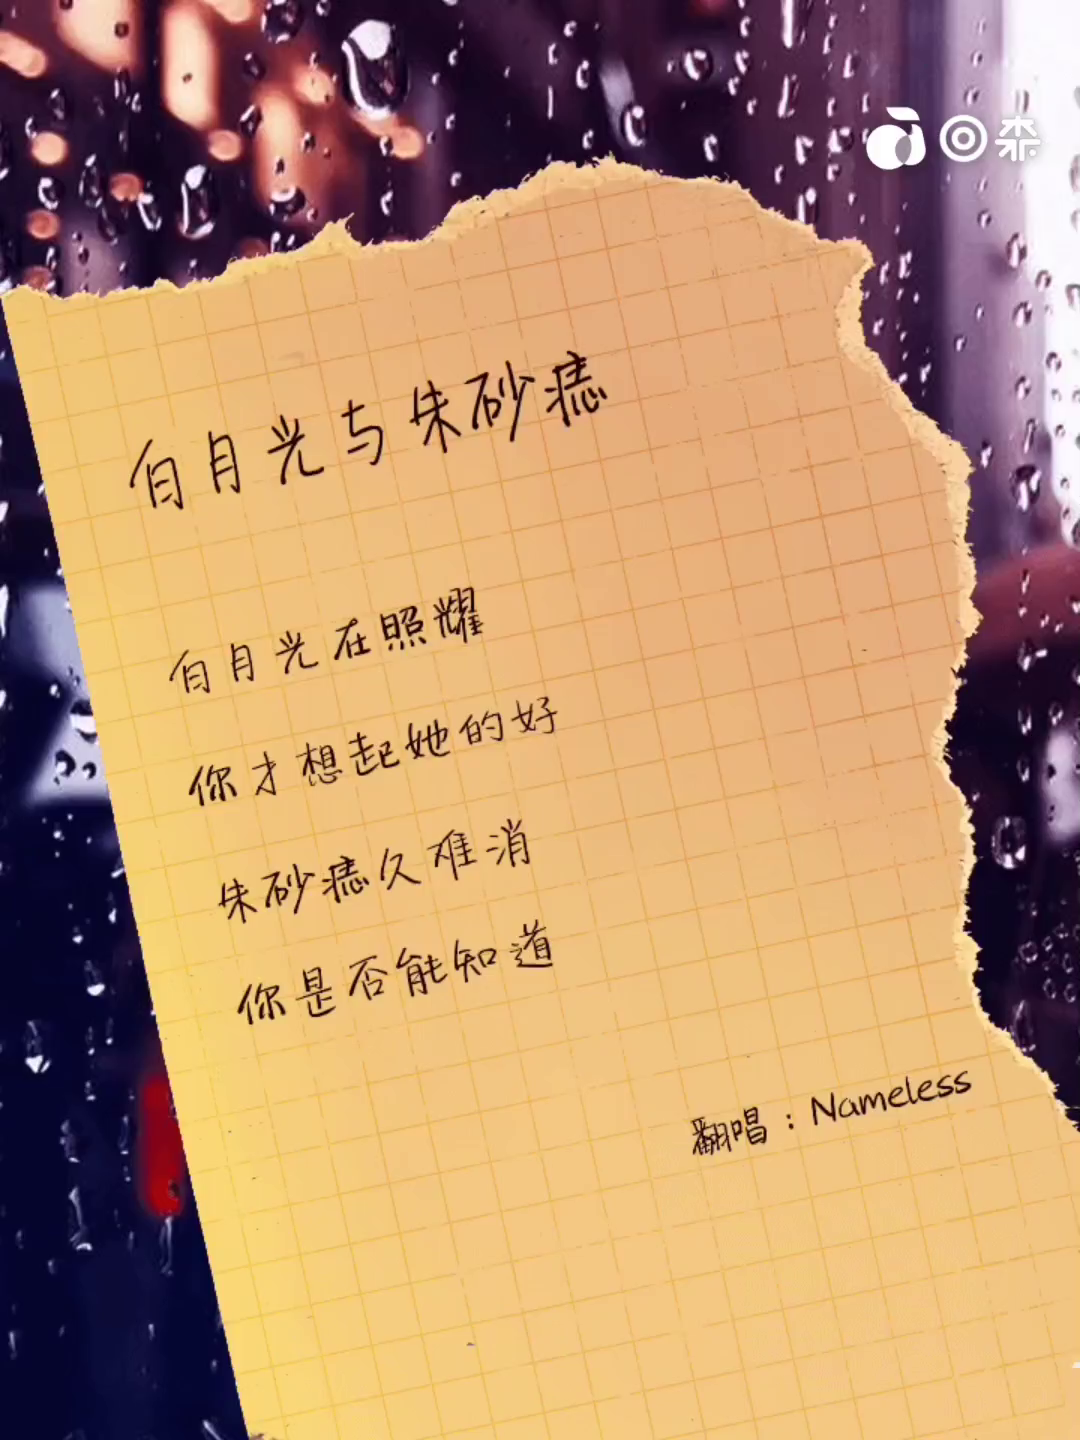 白月光与朱砂痣
白月光在照耀
你才想起她的好
朱砂痣久难消
你是否能知道
翻唱：Nameless